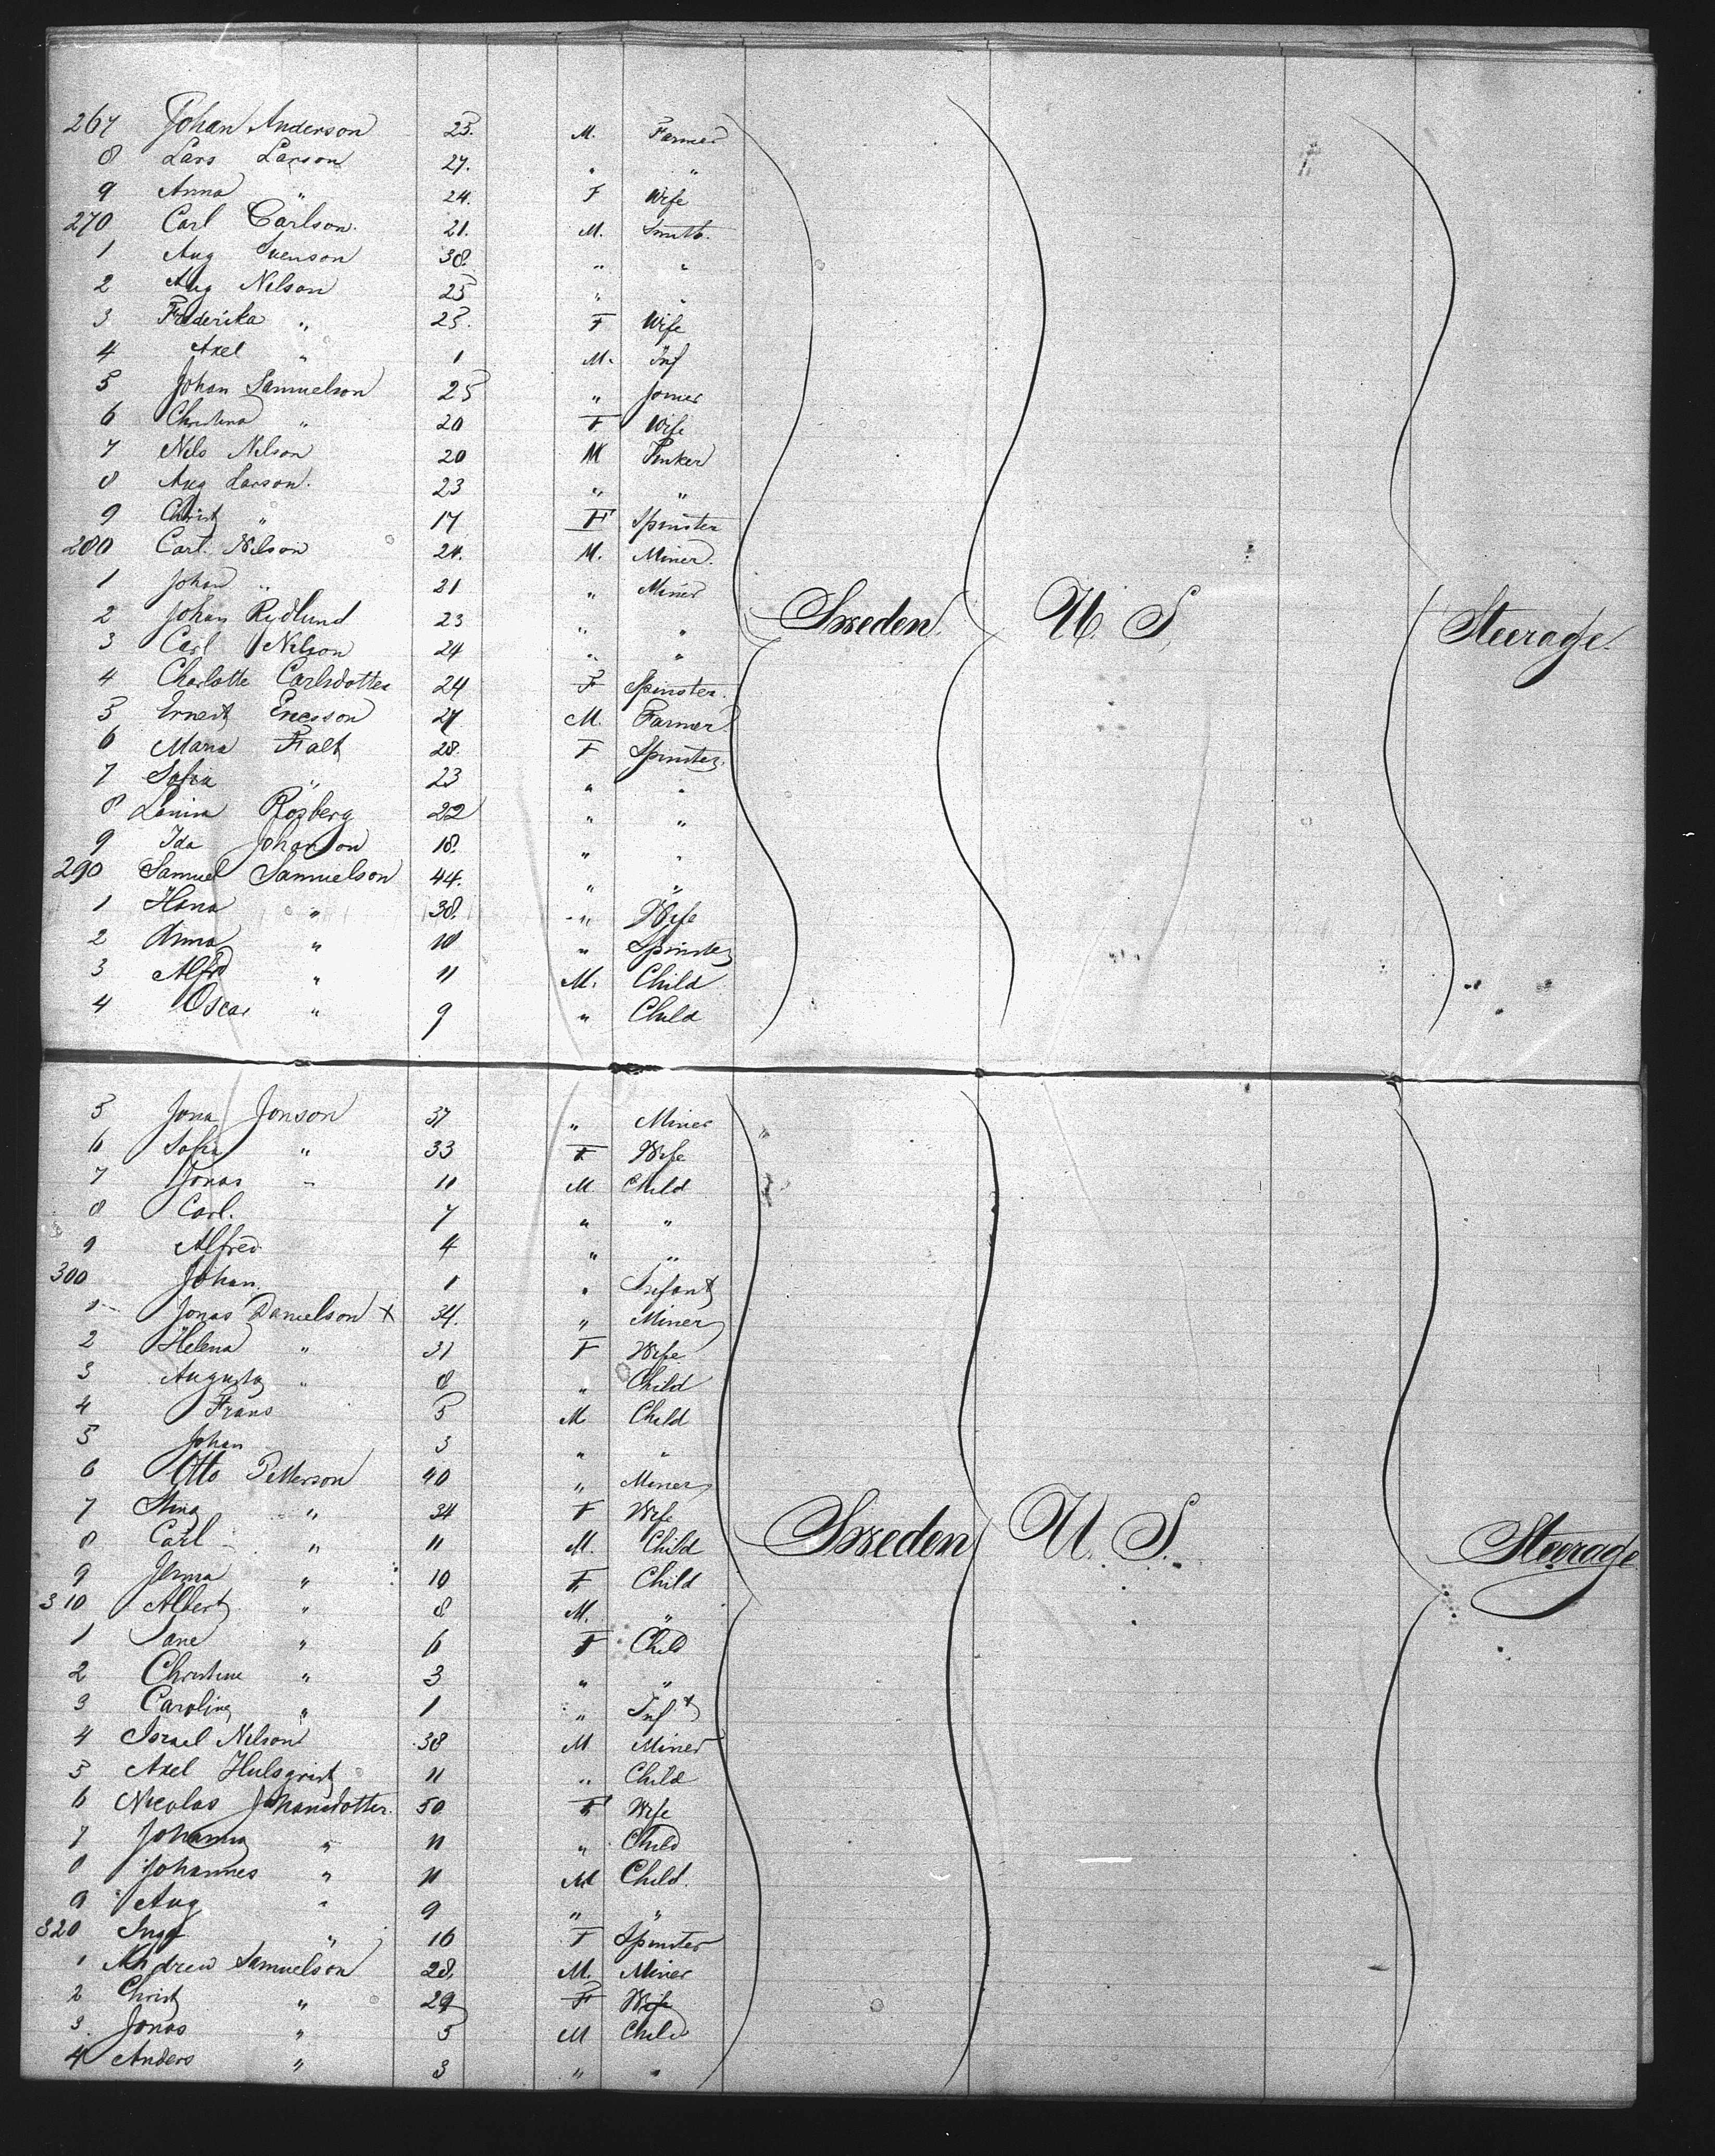 267 Johan Anderson 25. M. Farmer
8 Lars Larson 27. " "
9 Anna " 24. F Wife
270 Carl Carlson. 21. M. Smith.
1 Aug Svenson 30. " "
2 Aug Nelson 25 " "
3 Frederika " 25. F Wife
4 Axel " 1 M. Inf
5 Johan Samuelson 25 " Joiner
6 Christina " 20 F Wife
7 Nels Nelson 20 M
8 Aug Larson. 23 " "
9 Christ " 17 F Spinster
280 Carl Nelson 24. M. Miner.
1 Johan " 21 " Miner
2 Johan Rydlund 23 " "
Sweden. U. S. Steerage.
3 Carl Nelson 24 " "
4 Charlotte Carlsdotter 24 F Spinster.
5 Ernest Ericsson 27 M. Farmer
6 Maria Falt 28. F Spinster
7 Sofia " 23 " "
8 Rosberg 22 " "
9 Ida Johanson 18. " "
290 Samuel Samuelson 44. " "
1 Hana " 38. " Wife
2 Anna " 10 " Spinster
3 Alfred " 11 M. Child
4 Oscar " 9 " Child
5 Jona Jonson 37 " Miner
6 Sofia " 33 F Wife
7 Jonas " 10 M. Child
8 Carl. 7 " "
9 Alfred 4 " "
300 Johan. 1 " Infant
1 Jonas Danielson x 34. " Miner
2 Helena " 31 F Wife
3 Augusta " 8 " Child
4 Frans 5 M Child
5 Johan 3 " "
6 Otto Petterson 40 " Miner
7 Stina " 34 F Wife
8 Carl " 11 M. Child
Sweden U. S. Steerage
9 " 10 F Child
310 Albert " 8 M. "
1 Jane " 6 F Child
2 Christine " 3 " "
3 Caroline " 1 " Inft
4 Israel Nelson 38 M Miner
5 Axel Hulsqrist 11 " Child
6 Nicolas Johansdotter. 50 F Wife
7 Johanna " 11 " Child
8 Johannes " 11 M Child.
9 Aug " 9 " "
320 Inga " 16 F Spinster
1 Andrew Samuelson 28. M. Miner
2 Christ " 29 F Wife
3. Jonas " 5 M Child
4 Anders " 3 " "